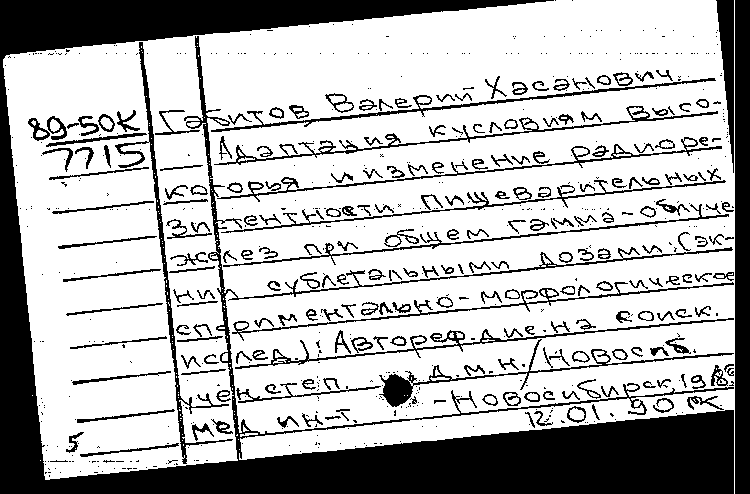 89-50К Габитов Валерий Хасанович.
7715 Адаптация к условиям высо-
когорья и изменение радиоре-
зистентности пищеварительных
желез при общем гамма-облуче
нии сублетальными дозами: (эк-
спериментально-морфологическое
исслед.): Автореф. дис. на соиск.
учен. степ. д.м.н./Новосиб.
мед. ин-т. -Новосибирск, 1989
5 12.01.90